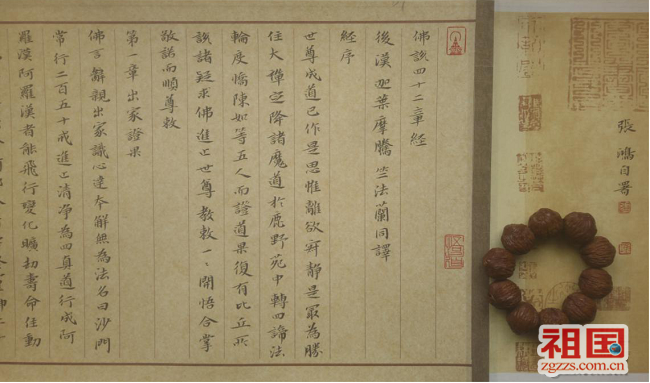 張鴻自署
佛說四十二章經
後漢迦葉摩騰竺法蘭同譯
經序
世尊成道已作是思惟離欲寂静是冣為勝
住大禪定降諸魔道於鹿野苑中轉四諦法
輪度憍陳如等五人而證道果復有比丘所
說諸疑求佛進止世尊教敕一一開悟合掌
敬諾而順尊敕
第一章 出家證果
佛言辭親出家識心達本解無為法名曰沙門
常行二百五十戒進止清净為四真道行成阿
羅漢阿羅漢者能飛行變化曠劫壽命住動
祖国
zgzzs.com.cn